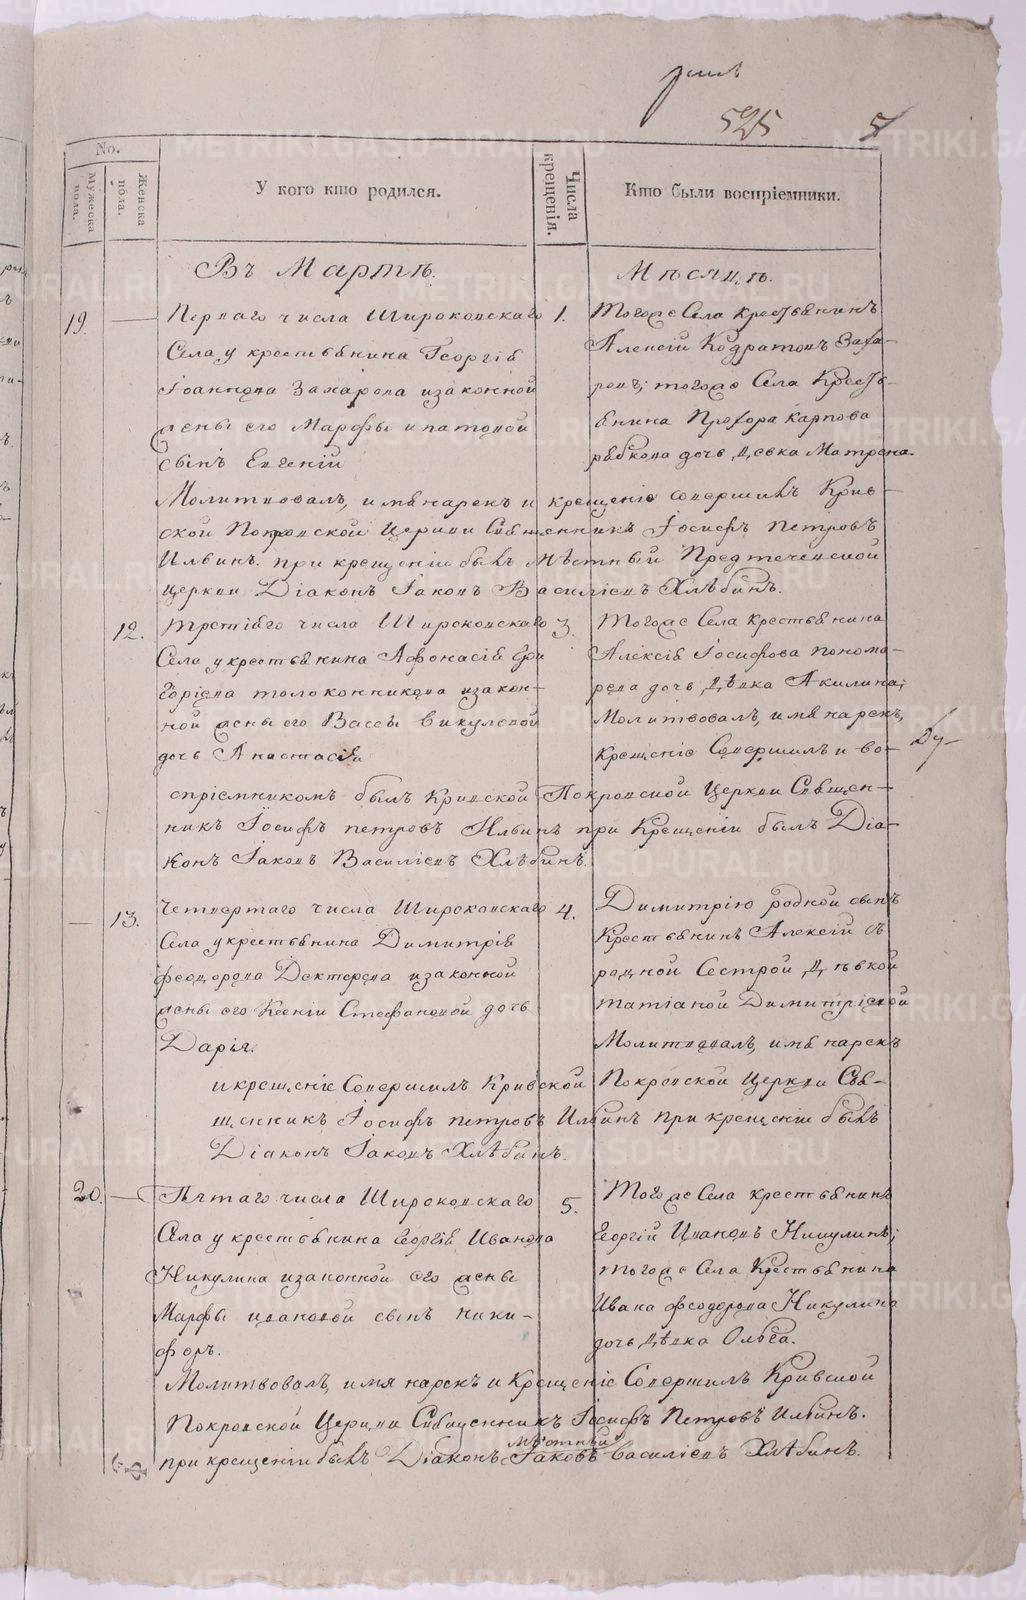 525
5
No.
Мужеска пола.
Женска пола.
У кого кто родился.
Числа крещенія.
Кто были воспріемники.
Въ Мартѣ. Мѣсяцѣ.
19. Перваго числа Широковскаго
Села у крестьянина Георгія
Іоаннова Захарова и законной
жены его Марфы Ипатовой
сынъ Евгеній
1. Тогоже Села крестьянинъ
Алексій Кодратовъ Заха-
ровъ; тогоже Села Кресть-
янина Прохора Карпова
дочь девка Матрона.
Молитвовалъ, имя нарекъ и крещеніе совершилъ Крив-
ской Покровской Церкви Священникъ Іосифъ Петровъ
Ильинъ. при крещеніи былъ мѣстный Предтеченской
церкви Діаконъ Іаковъ Василіевъ Хлѣбинъ.
12. Третіяго числа Широковскаго
Села у крестьянина Афонасія Гри
горіева Толоконникова и закон-
ной жены его Вассы Викуловой
дочь Анастасія
3. Тогоже Села крестьянина
Алексія Іосифова Понома-
рева дочь дѣвка Акилина;
Молитвовалъ, имя нарекъ,
крещеніе Совершилъ и во-
спріемникомъ былъ Кривской Покровской Церкви Священ-
никъ Іосифъ Петровъ Ильинъ при Крещеніи былъ Діа-
конъ Іаковъ Василіевъ Хлѣбинъ.
13. Четвертаго числа Широковскаго
Села у крестьянина Димитрія
Феодорова Дектерева и законной
жены его Ксеніи Стефановой дочь
Дарія.
4. Димитрію родной сынъ
Крестьянинъ Алексій съ
родной Сестрой Дѣвкой
Татіаной Димитріевой
Молитвовалъ, имя нарекъ
и крещеніе Совершилъ Кривской Покровской Церкви Свя-
щенникъ Іосифъ Петровъ Ильинъ при крещеніи былъ
Діаконъ Іаковъ Хлѣбинъ.
20. Пятаго числа Широковскаго
Села у крестьянина Георгія Иванова
Никулина и законной его жены
Марфы Ивановой сынъ Ники-
форъ.
5. Тогоже Села крестьянинъ
Георгій Ивановъ Никулинъ;
тогоже Села Крестьянина
Ивана Феодорова Никулина
дочь дѣвка Ольга.
Молитвовалъ, имя нарекъ и Крещеніе Совершилъ Кривской
Покровской Церкви Священникъ Іосифъ Петровъ Ильинъ.
мѣстный
при крещеніи былъ Діаконъ Іаковъ Василіевъ Хлѣбинъ.
METRIKI.GASO-URAL.RU